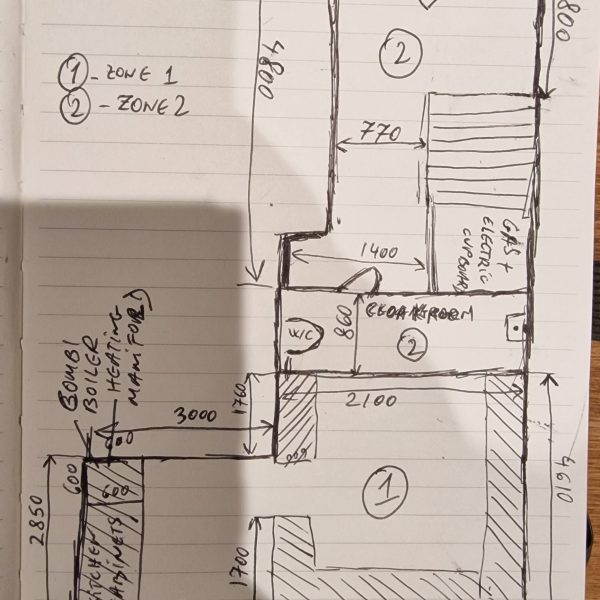 800
2
4800
1 - ZONE 1
2 - ZONE 2
770
GAS +
ELECTRIC
CUPBOARD
1400
CLOAKROOM
W/C
860
2
COMBI
BOILER
HEATING
MANIFOLD
3000
1760
2100
600
1
4610
2850
1700
KITCHEN
CABINETS